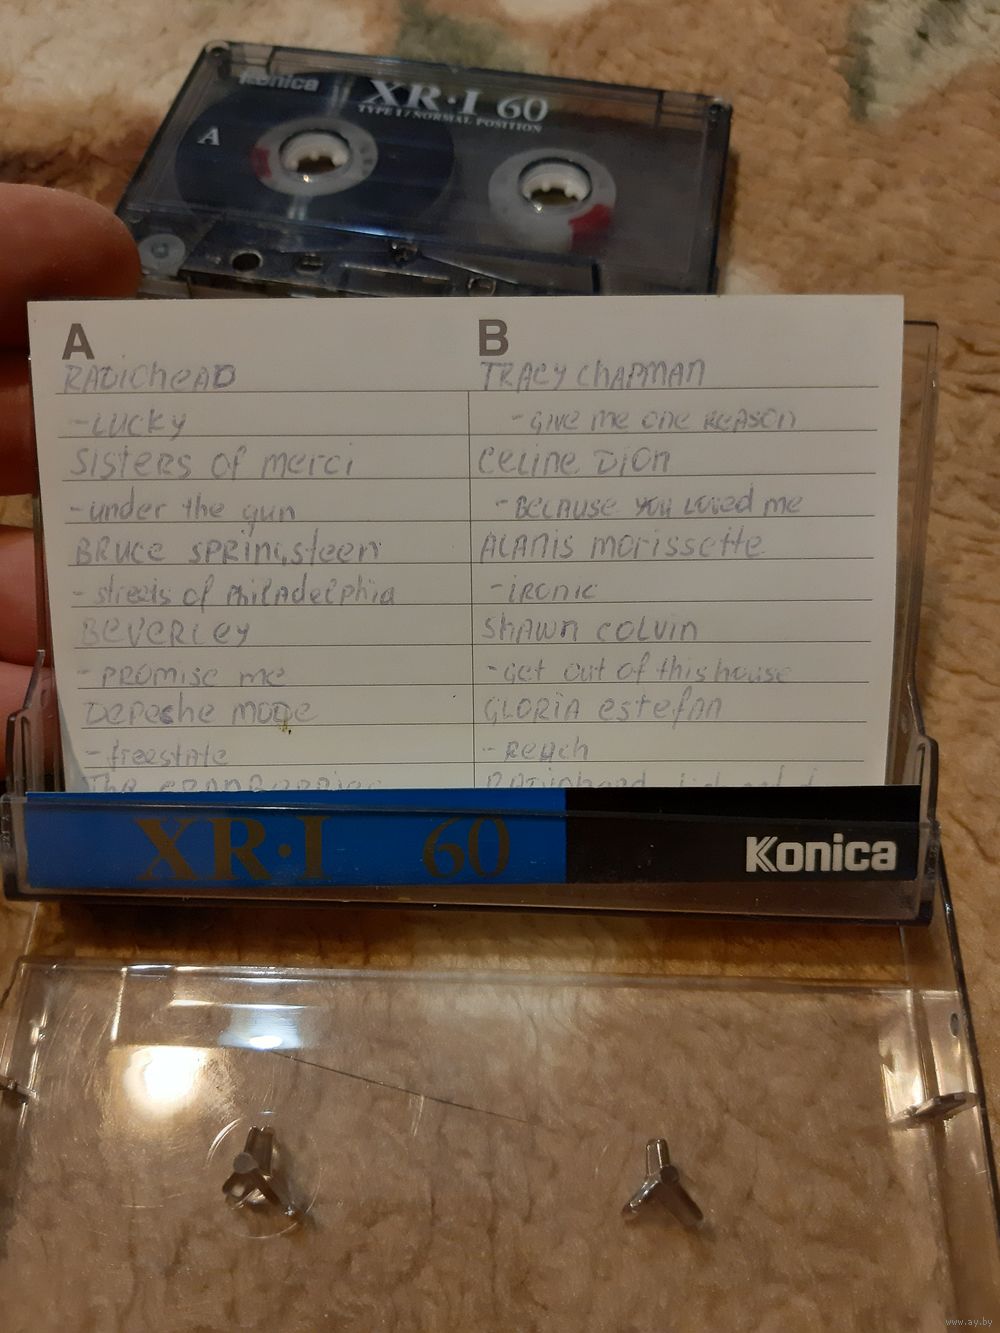 Konica
XR·I 60
TYPE I / NORMAL POSITION
A
A
RADIOheAD
-LUCKY
Sisters of merci
-under the gun
BRUCE SPRINGSteen
- streets of PhilAdelphia
BEVERLEY
- PROMISE me
Depeche mode
-freestAte
The CRANBERRIES
B
TRACY ChAPMAN
-GIVE me one REASON
Celine Dion
-BECAUSE you loved me
ALANIS morissette
-iRonic
ShAWN COLVIN
-Get out of this house
GLORIA estefAn
-REACh
RADiohead
XR·I 60
Konica
www.ay.by